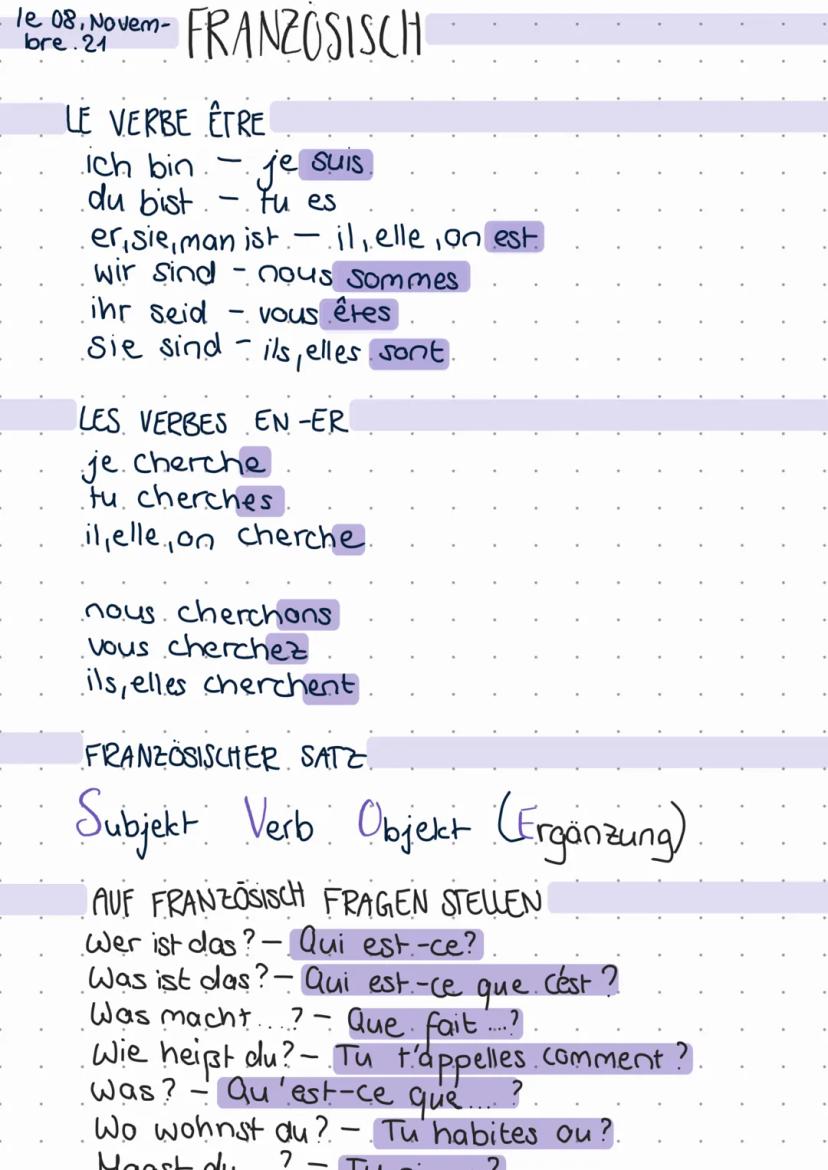 le 08, Novem-
bre. 21
FRANZÖSISCH
LE VERBE ÊTRE
ich bin – je suis
du bist – tu es
er, sie, man ist – il, elle, on est
wir sind – nous sommes
ihr seid – vous êtes
Sie sind – ils, elles sont
LES VERBES EN -ER
je cherche
tu cherches
il, elle, on cherche
nous cherchons
vous cherchez
ils, elles cherchent
FRANZÖSISCHER SATZ
Subjekt Verb Objekt (Ergänzung)
AUF FRANZÖSISCH FRAGEN STELLEN
Wer ist das? – Qui est-ce?
Was ist das? – Qui est-ce que c'ést?
Was macht ...? – Que fait ...?
Wie heißt du? – Tu t'appelles comment?
Was? – Qu'est-ce que ... ?
Wo wohnst du? – Tu habites ou?
du ? – Tu ?